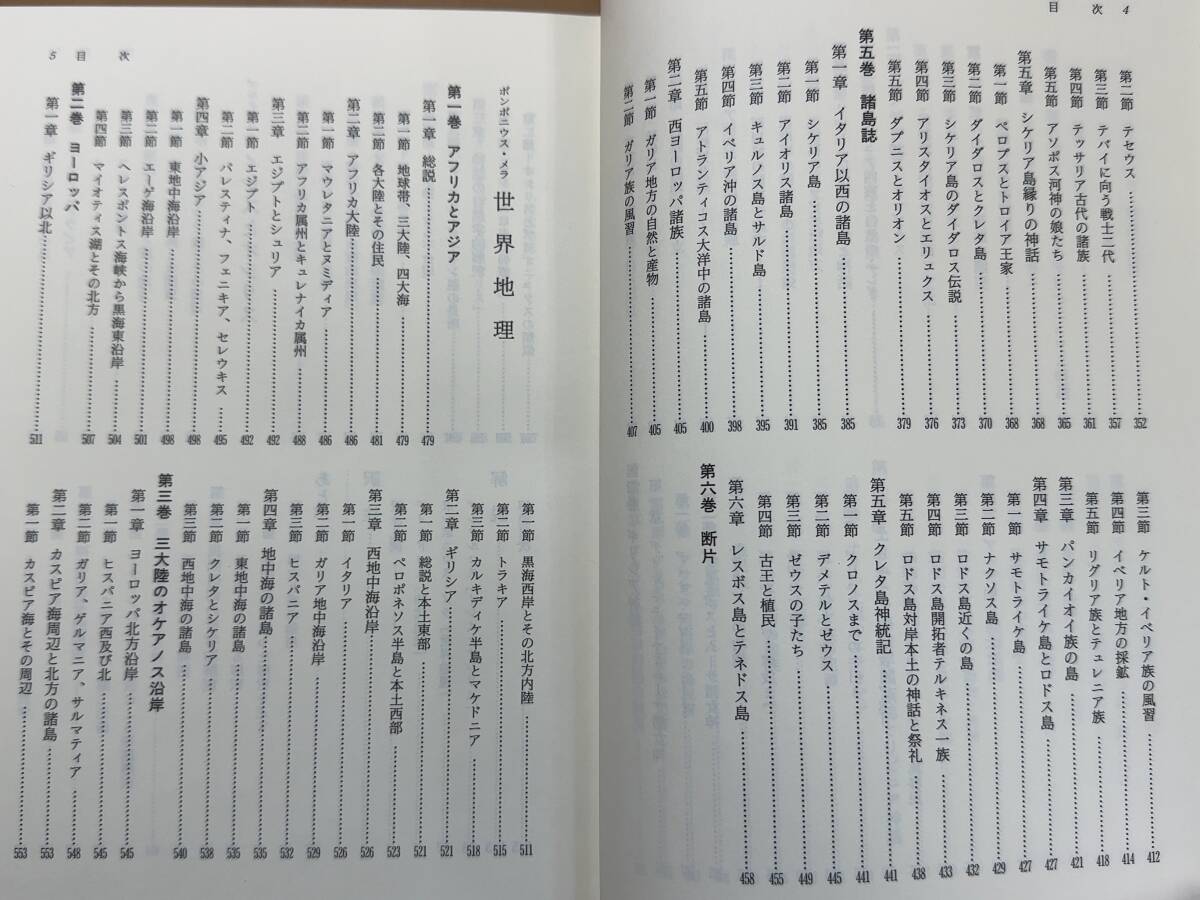 目次 4
第二節 テセウス 352
第三節 テバイに向う戦士二代 357
第四節 テッサリア古代の諸族 361
第五節 アソポス河神の娘たち 365
第五章 シケリア島縁りの神話 368
第一節 ペロプスとトロイア王家 368
第二節 ダイダロスとクレタ島 370
第三節 シケリア島のダイダロス伝説 373
第四節 アリスタイオスとエリュクス 376
第五節 ダプニスとオリオン 379
第五巻 諸島誌
第一章 イタリア以西の諸島 385
第一節 シケリア島 385
第二節 アイオリス諸島 391
第三節 キュルノス島とサルド島 395
第四節 イベリア沖の諸島 398
第五節 アトランティコス大洋中の諸島 400
第二章 西ヨーロッパ諸族 405
第一節 ガリア地方の自然と産物 405
第二節 ガリア族の風習 407
第三節 ケルト・イベリア族の風習 412
第四節 イベリア地方の採鉱 414
第五節 リグリア族とテュレニア族 418
第三章 パンカイオイ族の島 421
第四章 サモトライケ島とロドス島 427
第一節 サモトライケ島 427
第二節 ナクソス島 429
第三節 ロドス島近くの島 432
第四節 ロドス島開拓者テルキネス一族 433
第五節 ロドス島対岸本土の神話と祭礼 438
第五章 クレタ島神統記 441
第一節 クロノスまで 441
第二節 デメテルとゼウス 445
第三節 ゼウスの子たち 449
第四節 古王と植民 455
第六章 レスボス島とテネドス島 458
第六巻 断片
5 目次
ポンポニウス・メラ 世界地理
第一巻 アフリカとアジア
第一章 総説 479
第一節 地球帯、三大陸、四大海 479
第二節 各大陸とその住民 481
第二章 アフリカ大陸 486
第一節 マウレタニアとヌミディア 486
第二節 アフリカ属州とキュレナイカ属州 488
第三章 エジプトとシュリア 492
第一節 エジプト 492
第二節 パレスティナ、フェニキア、セレウキス 495
第四章 小アジア 498
第一節 東地中海沿岸 498
第二節 エーゲ海沿岸 501
第三節 ヘレスポントス海峡から黒海東沿岸 504
第四節 マイオティス湖とその北方 507
第二巻 ヨーロッパ
第一章 ギリシア以北 511
第一節 黒海西岸とその北方内陸 511
第二節 トラキア 515
第三節 カルキディケ半島とマケドニア 518
第二章 ギリシア 521
第一節 総説と本土東部 521
第二節 ペロポネソス半島と本土西部 523
第三章 西地中海沿岸 526
第一節 イタリア 526
第二節 ガリア地中海沿岸 529
第三節 ヒスパニア 532
第四章 地中海の諸島 535
第一節 東地中海の諸島 535
第二節 クレタとシケリア 538
第三節 西地中海の諸島 540
第三巻 三大陸のオケアノス沿岸
第一章 ヨーロッパ北方沿岸 545
第一節 ヒスパニア西及び北 545
第二節 ガリア、ゲルマニア、サルマティア 548
第二章 カスピア海周辺と北方の諸島 553
第一節 カスピア海とその周辺 553